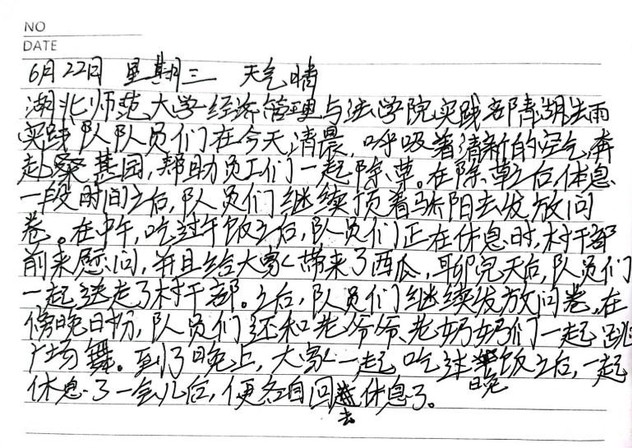 NO
DATE
6月22日 星期三 天气晴
湖北师范大学经济管理与法学院实践部隋胡去雨
实践队队员们在今天清晨,呼吸着清新的空气,奔
赴桑葚园,帮助员工们一起除草。在除草之后,休息
一段时间之后,队员们继续顶着骄阳去发放问
卷。在中午,吃过午饭之后,队员们正在休息时,村干部
前来慰问,并且给大家带来了西瓜,聊完天后,队员们
一起送走了村干部。之后,队员们继续发放问卷。在
傍晚时分,队员们还和老爷爷、老奶奶们一起跳
广场舞。到了晚上,大家一起吃过晚饭之后,一起
休息了一会儿后,便各自回去休息了。